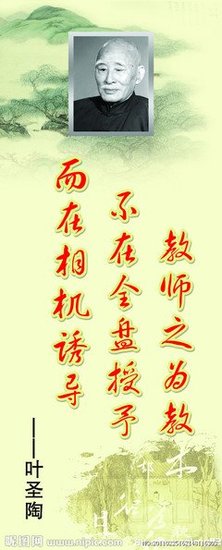 教师之为教
不在全盘授予
而在相机诱导
——叶圣陶
昵图网
www.nipic.com